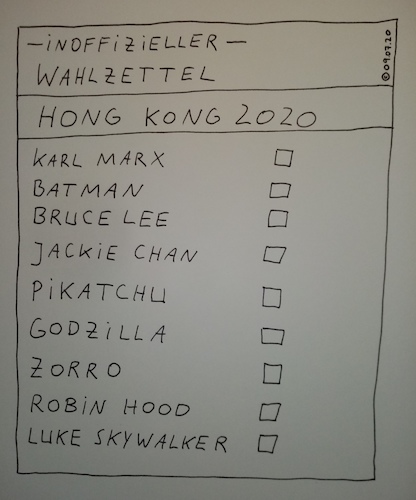 -INOFFIZIELLER-
WAHLZETTEL
©09.07.20
HONG KONG 2020
KARL MARX
BATMAN
BRUCE LEE
JACKIE CHAN
PIKATCHU
GODZILLA
ZORRO
ROBIN HOOD
LUKE SKYWALKER